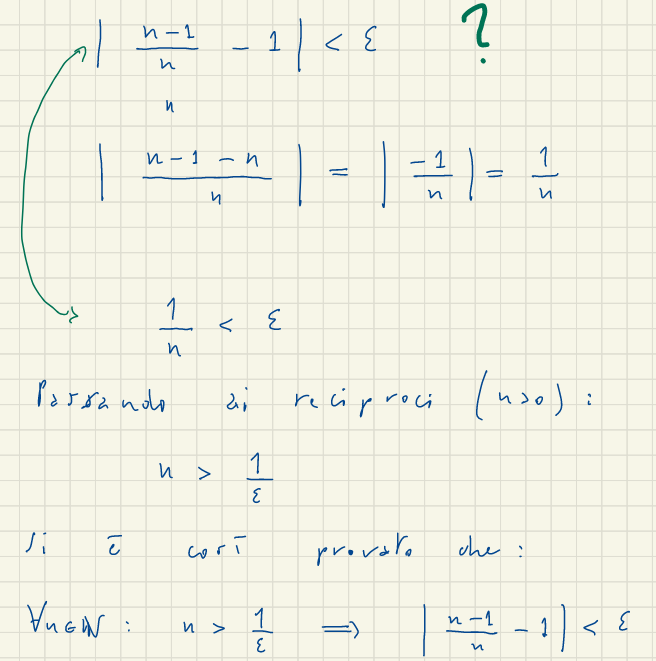 | (n-1)/n - 1 | < ε ?
n
| (n-1-n)/n | = | -1/n | = 1/n
1/n < ε
Passando ai reciproci (n>0) :
n > 1/ε
Si è così provato che :
∀n∈ℕ : n > 1/ε ⟹ | (n-1)/n - 1 | < ε